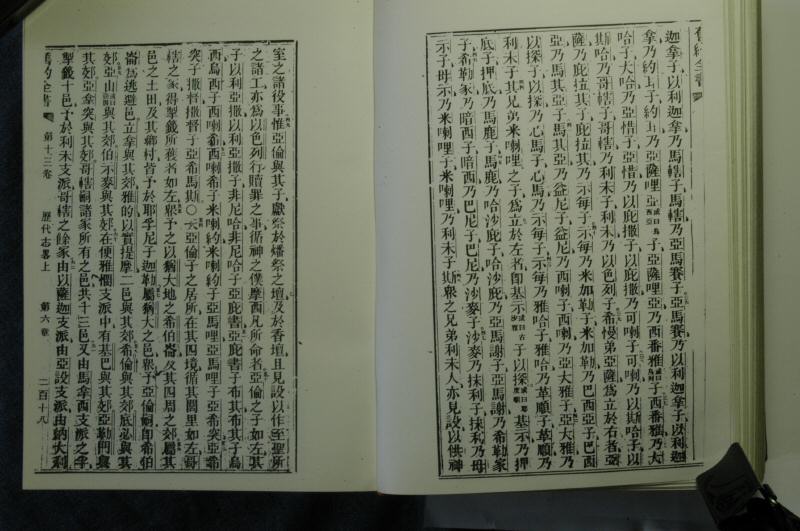 舊約全書
迦拿子以利迦拿乃馬轄子馬轄乃亞馬賽子亞馬賽乃以利迦拿子以利
子亞薩哩亞乃西番雅子西番雅乃大
哈子大哈乃亞惜子亞惜乃以庇撒子以庇撒乃可喇子可喇乃以斯哈子以
斯哈乃哥轄子哥轄乃利未子利未乃以色列子希慢弟亞薩爲立於右者亞
薩乃庇拉其子庇拉其乃示每子示每乃米加勒子米加勒乃巴西亞子巴西
亞乃馬其亞子馬其亞乃益尼子益尼乃西喇子西喇乃亞大雅子亞大雅乃
以探子以探乃心馬子心馬乃示每子示每乃雅哈子雅哈乃革順子革順乃
利未子其兄弟米喇哩之子爲立於左者卽基示子以探基示乃押
底子押底乃馬鹿子馬鹿乃哈沙庇子哈沙庇乃亞馬謝子亞馬謝乃希勒家
子希勒家乃暗西子暗西乃巴尼子巴尼乃沙麥子沙麥乃抹利子抹利乃母
示子母示乃米喇哩子米喇哩乃利未子其眾之兄弟利未人亦見設以供神
室之諸役事惟亞倫與其子獻祭於燔祭之壇及於香壇且見設以作至聖所
之諸工亦爲以色列行贖罪之事循神之僕摩西凡所命者亞倫之子如左其
子以利亞撒以利亞撒子非尼哈非尼哈子亞庇書亞庇書子布其布其子烏
西烏西子西喇希西喇希子米喇約米喇約子亞馬哩亞馬哩子亞希突亞希
突子撒督撒督子亞希馬斯〇夫亞倫子之居所在其四境循其閭里如左哥
轄之家得掣籤所獲者如左眾予之以猶大地之希伯崙及其四周之郊屬其
邑之土田及其鄉村皆予於耶孚尼子迦勒屬猶大之邑眾予亞倫嗣卽希伯
崙爲逃避邑立拿與其郊雅的以實提摩二邑與其郊希倫與其郊底必與其
郊亞山與其郊伯示麥與其郊在便雅憫支派中有基巴與其郊亞勒門與
其郊亞拿突與其郊哥轄嗣諸家所有之邑共十三邑又由馬拿西支派之半
掣籤十邑予於利未支派哥轄之餘家由以薩迦支派由亞設支派由納大利
舊約全書 第十三卷 歷代志畧上 第六章 二百十八